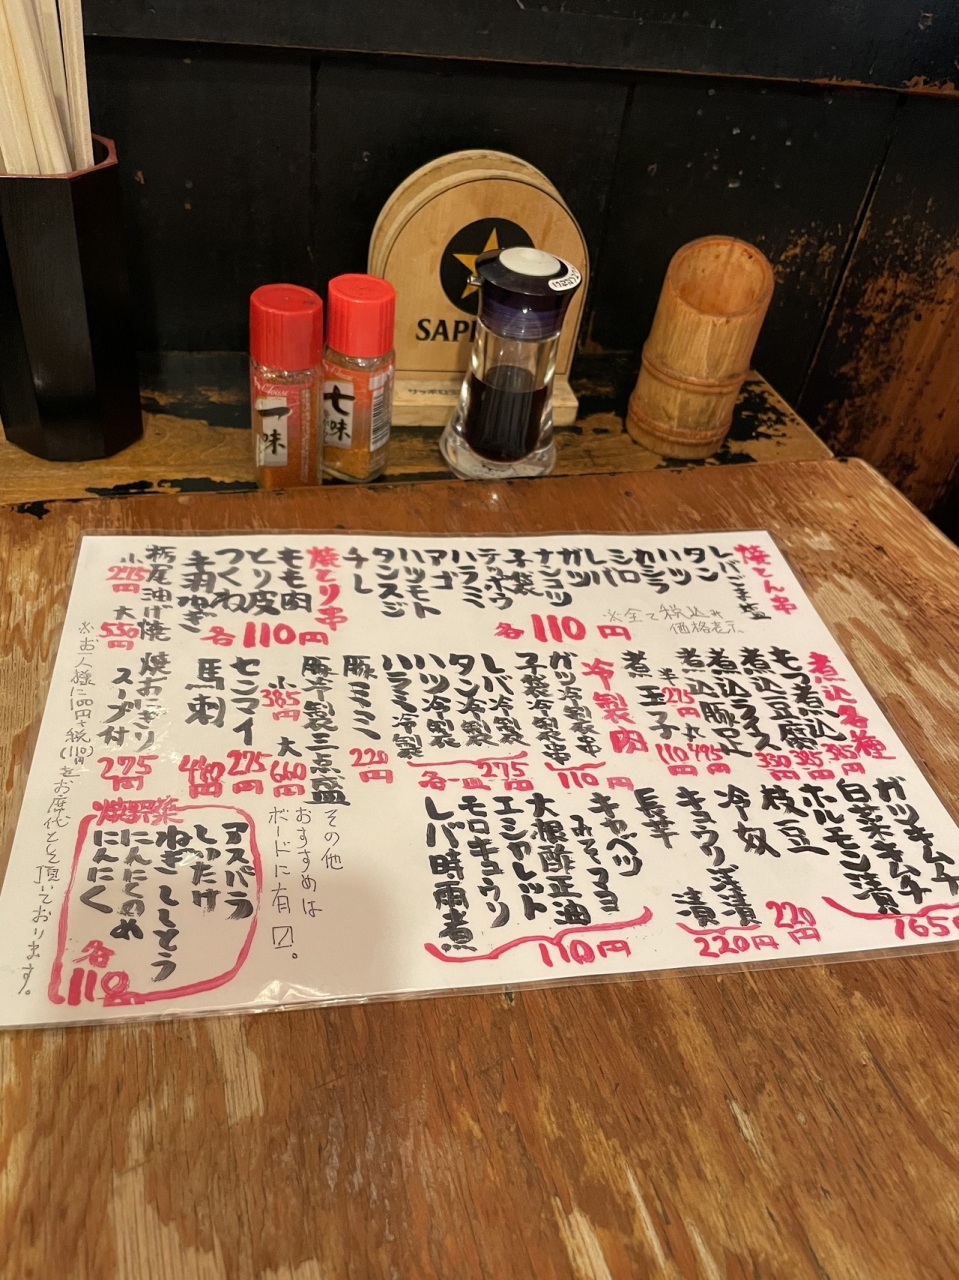 SAP
サッポロ
一味
七味
焼とん串
レバごま塩
タン
ハツ
カシラ
シロ
レバ
ガツ
ナンコツ
子袋
テッポウ
ハラミ
アゴ
ハツモト
タンスジ
チレ
各110円
※全て税込み
価格表示
焼とり串
もも肉
とり皮
つくね
各110円
栃尾油げ焼
小275円
大550円
煮込各種
もつ煮込
385円
煮込豆腐
385円
煮込ライス
350円
煮込豚足
丸495円
半275円
煮玉子
110円
冷製肉
ガツ冷製串
子袋冷製串
110円
レバ冷製
タン冷製
ハツ冷製
ハラミ冷製
各一皿275円
豚ミミ
220円
豚冷製三点盛
小385円
大660円
センマイ
275円
馬刺
440円
焼おにぎり
スープ付
275円
ガツキムチ
白菜キムチ
ホルモン漬
165円
枝豆
220円
冷奴
キュウリ浅漬
220円
長芋
キャベツ
みそマヨ
大根酢正油
エシャレット
モロキュウリ
レバ時雨煮
110円
その他
おすすめは
ボードに有〼。
焼野菜
アスパラ
しいたけ
ねぎ
ししとう
にんにくのめ
にんにく
各110
※お一人様に100円+税(110円)をお席代として頂いております。